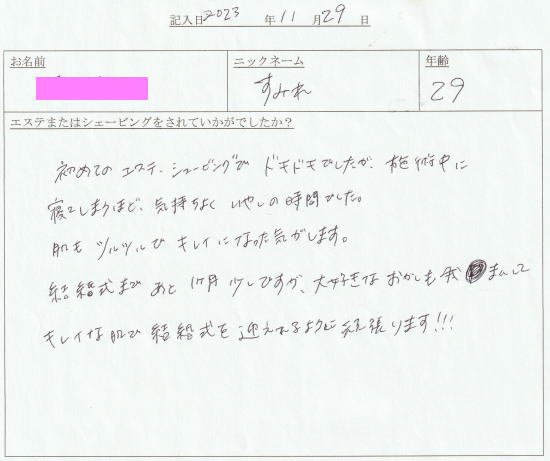 記入日 2023 年 11 月 29 日
お名前
ニックネーム
年齢
すみれ
29
エステまたはシェービングをされていかがでしたか?
初めてのエステ、シェービングで ドキドキでしたが、施術中に
寝てしまうほど、気持ちよく いやしの時間でした。
肌も ツルツルで キレイになった気がします。
結婚式まで あと 1ヶ月 少しですが、大好きな おかしも 我まんして
キレイな肌で 結婚式を 迎えれるように 頑張ります!!!